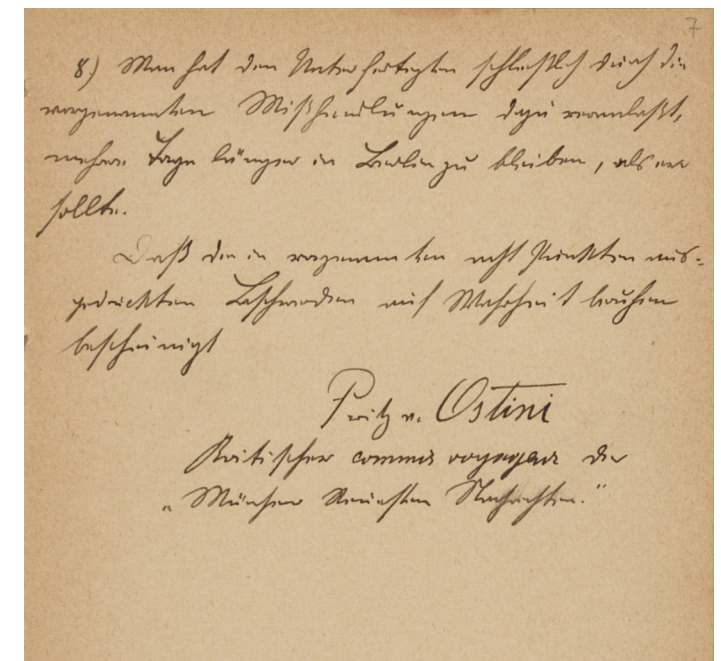 7
8) Man hat den Unterfertigten schließlich durch die
vorgenannten Mißhandlungen dazu veranlaßt,
mehrere Tage länger in Berlin zu bleiben, als er
sollte.
Daß die in vorgenannten acht Punkten aus-
gedrückten Beschwerden auf Wahrheit beruhen
bescheinigt
Fritz v. Ostini
Kritischer commis voyageur der
„Münchner Neuesten Nachrichten."